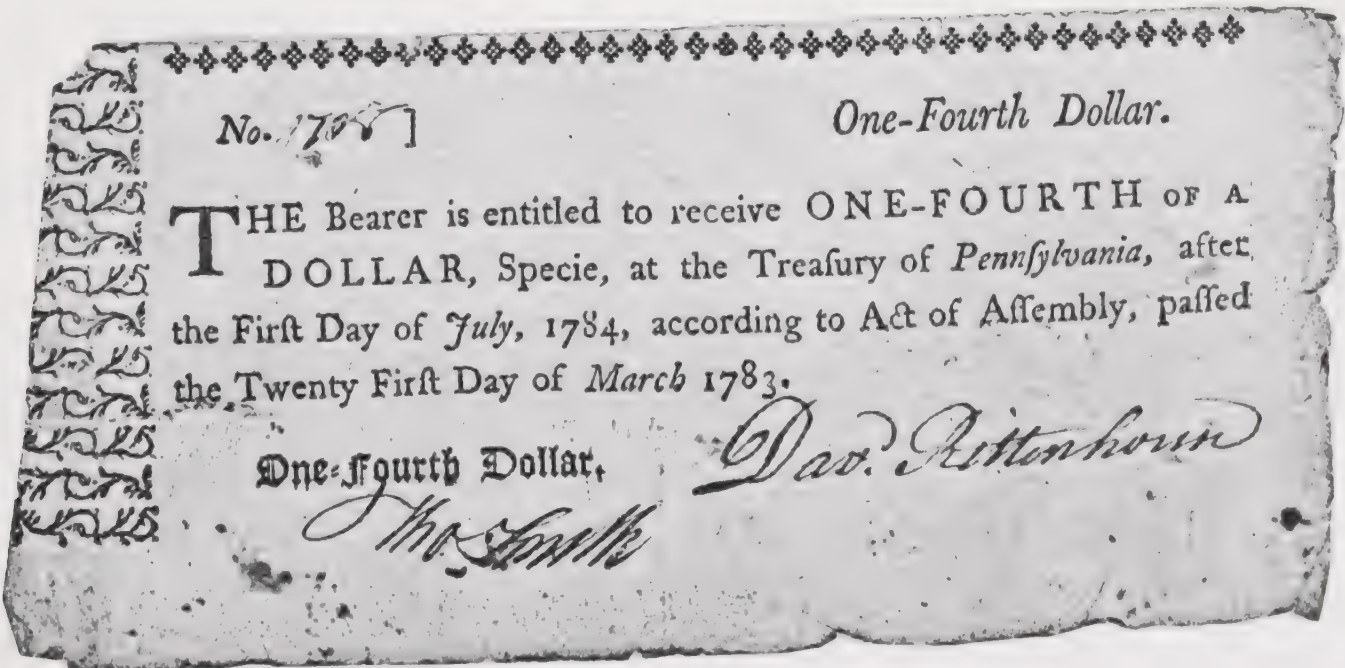 No. ]
One-Fourth Dollar.
THE Bearer is entitled to receive ONE-FOURTH OF A
DOLLAR, Specie, at the Treaſury of Pennſylvania, after
the Firſt Day of July, 1784, according to Act of Aſſembly, paſſed
the Twenty Firſt Day of March 1783.
One-Fourth Dollar.
Dav.d Rittenhouse
Tho Smith